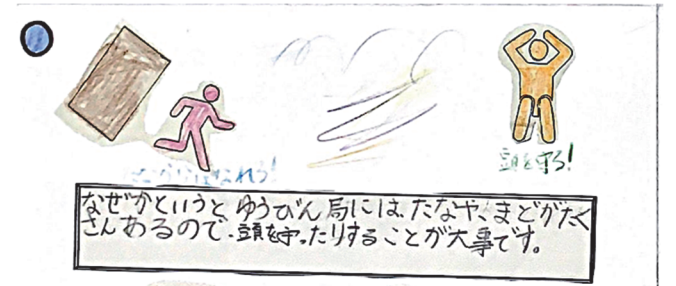 頭を守ろ!
なぜかというと、ゆうびん局には、たなや、まどがたく
さんあるので、頭を守ったりすることが大事です。